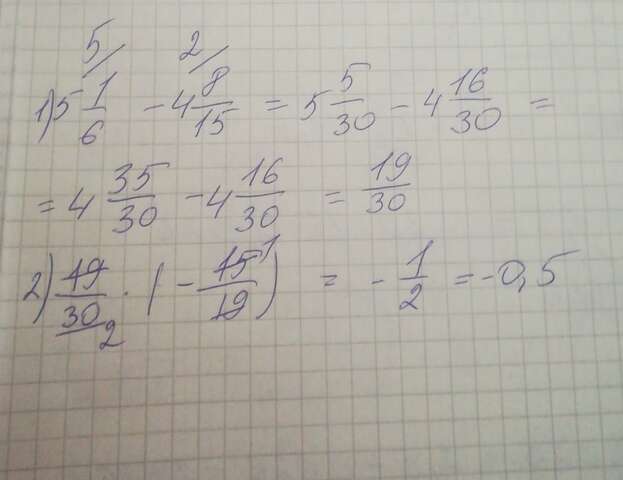 5/ 2/
1) 5 1/6 - 4 8/15 = 5 5/30 - 4 16/30 =
= 4 35/30 - 4 16/30 = 19/30
2) 19/30 2 · ( - 15/19 1 ) = - 1/2 = -0,5